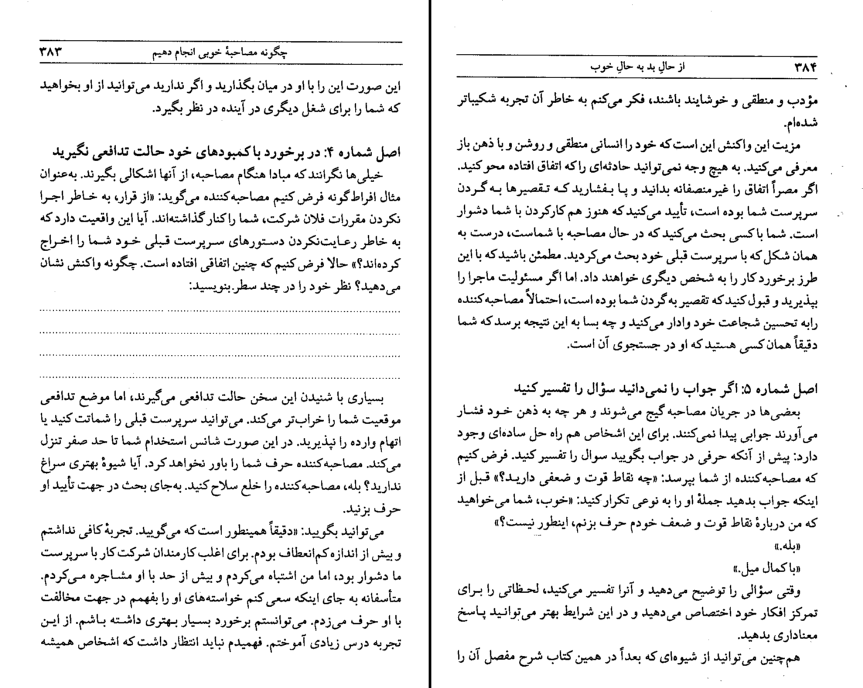 ۳۸۳
چگونه مصاحبهٔ خوبی انجام دهیم
این صورت این را با او در میان بگذارید و اگر ندارید می‌توانید از او بخواهید
که شما را برای شغل دیگری در آینده در نظر بگیرد.
اصل شماره ۴: در برخورد با کمبودهای خود حالت تدافعی نگیرید
خیلی‌ها نگرانند که مبادا هنگام مصاحبه، از آنها اشکالی بگیرند. به‌عنوان
مثال افراط‌گونه فرض کنیم مصاحبه‌کننده می‌گوید: «از قرار، به خاطر اجرا
نکردن مقررات فلان شرکت، شما را کنار گذاشته‌اند. آیا این واقعیت دارد که
به خاطر رعایت‌نکردن دستورهای سرپرست قبلی خود شما را اخراج
کرده‌اند؟» حالا فرض کنیم که چنین اتفاقی افتاده است. چگونه واکنش نشان
می‌دهید؟ نظر خود را در چند سطر بنویسید:
بسیاری با شنیدن این سخن حالت تدافعی می‌گیرند، اما موضع تدافعی
موقعیت شما را خراب‌تر می‌کند. می‌توانید سرپرست قبلی را شماتت کنید یا
اتهام وارده را نپذیرید. در این صورت شانس استخدام شما تا حد صفر تنزل
می‌کند. مصاحبه‌کننده حرف شما را باور نخواهد کرد. آیا شیوهٔ بهتری سراغ
ندارید؟ بله، مصاحبه‌کننده را خلع سلاح کنید. به‌جای بحث در جهت تأیید او
حرف بزنید.
می‌توانید بگویید: «دقیقاً همینطور است که می‌گویید. تجربهٔ کافی نداشتم
و بیش از اندازه کم‌انعطاف بودم. برای اغلب کارمندان شرکت کار با سرپرست
ما دشوار بود، اما من اشتباه می‌کردم و بیش از حد با او مشاجره می‌کردم.
متأسفانه به جای اینکه سعی کنم خواسته‌های او را بفهمم در جهت مخالفت
با او حرف می‌زدم. می‌توانستم برخورد بسیار بهتری داشته باشم. از این
تجربه درس زیادی آموختم. فهمیدم نباید انتظار داشت که اشخاص همیشه
۳۸۴
از حالِ بد به حالِ خوب
مؤدب و منطقی و خوشایند باشند، فکر می‌کنم به خاطر آن تجربه شکیباتر
شده‌ام.
مزیت این واکنش این است که خود را انسانی منطقی و روشن و با ذهن باز
معرفی می‌کنید. به هیچ وجه نمی‌توانید حادثه‌ای را که اتفاق افتاده محو کنید.
اگر مصراً اتفاق را غیرمنصفانه بدانید و پا بفشارید که تقصیرها به گردن
سرپرست شما بوده است، تأیید می‌کنید که هنوز هم کارکردن با شما دشوار
است. شما با کسی بحث می‌کنید که در حال مصاحبه با شماست، درست به
همان شکل که با سرپرست قبلی خود بحث می‌کردید. مطمئن باشید که با این
طرز برخورد کار را به شخص دیگری خواهند داد. اما اگر مسئولیت ماجرا را
بپذیرید و قبول کنید که تقصیر به گردن شما بوده است، احتمالاً مصاحبه‌کننده
را به تحسین شجاعت خود وادار می‌کنید و چه بسا به این نتیجه برسد که شما
دقیقاً همان کسی هستید که او در جستجوی آن است.
اصل شماره ۵: اگر جواب را نمی‌دانید سؤال را تفسیر کنید
بعضی‌ها در جریان مصاحبه گیج می‌شوند و هر چه به ذهن خود فشار
می‌آورند جوابی پیدا نمی‌کنند. برای این اشخاص هم راه حل ساده‌ای وجود
دارد: پیش از آنکه حرفی در جواب بگویید سوال را تفسیر کنید. فرض کنیم
که مصاحبه‌کننده از شما بپرسد: «چه نقاط قوت و ضعفی دارید؟» قبل از
اینکه جواب بدهید جملهٔ او را به نوعی تکرار کنید: «خوب، شما می‌خواهید
که من دربارهٔ نقاط قوت و ضعف خودم حرف بزنم، اینطور نیست؟»
«بله.»
«با کمال میل.»
وقتی سؤالی را توضیح می‌دهید و آنرا تفسیر می‌کنید، لحظاتی را برای
تمرکز افکار خود اختصاص می‌دهید و در این شرایط بهتر می‌توانید پاسخ
معناداری بدهید.
هم‌چنین می‌توانید از شیوه‌ای که بعداً در همین کتاب شرح مفصل آن را